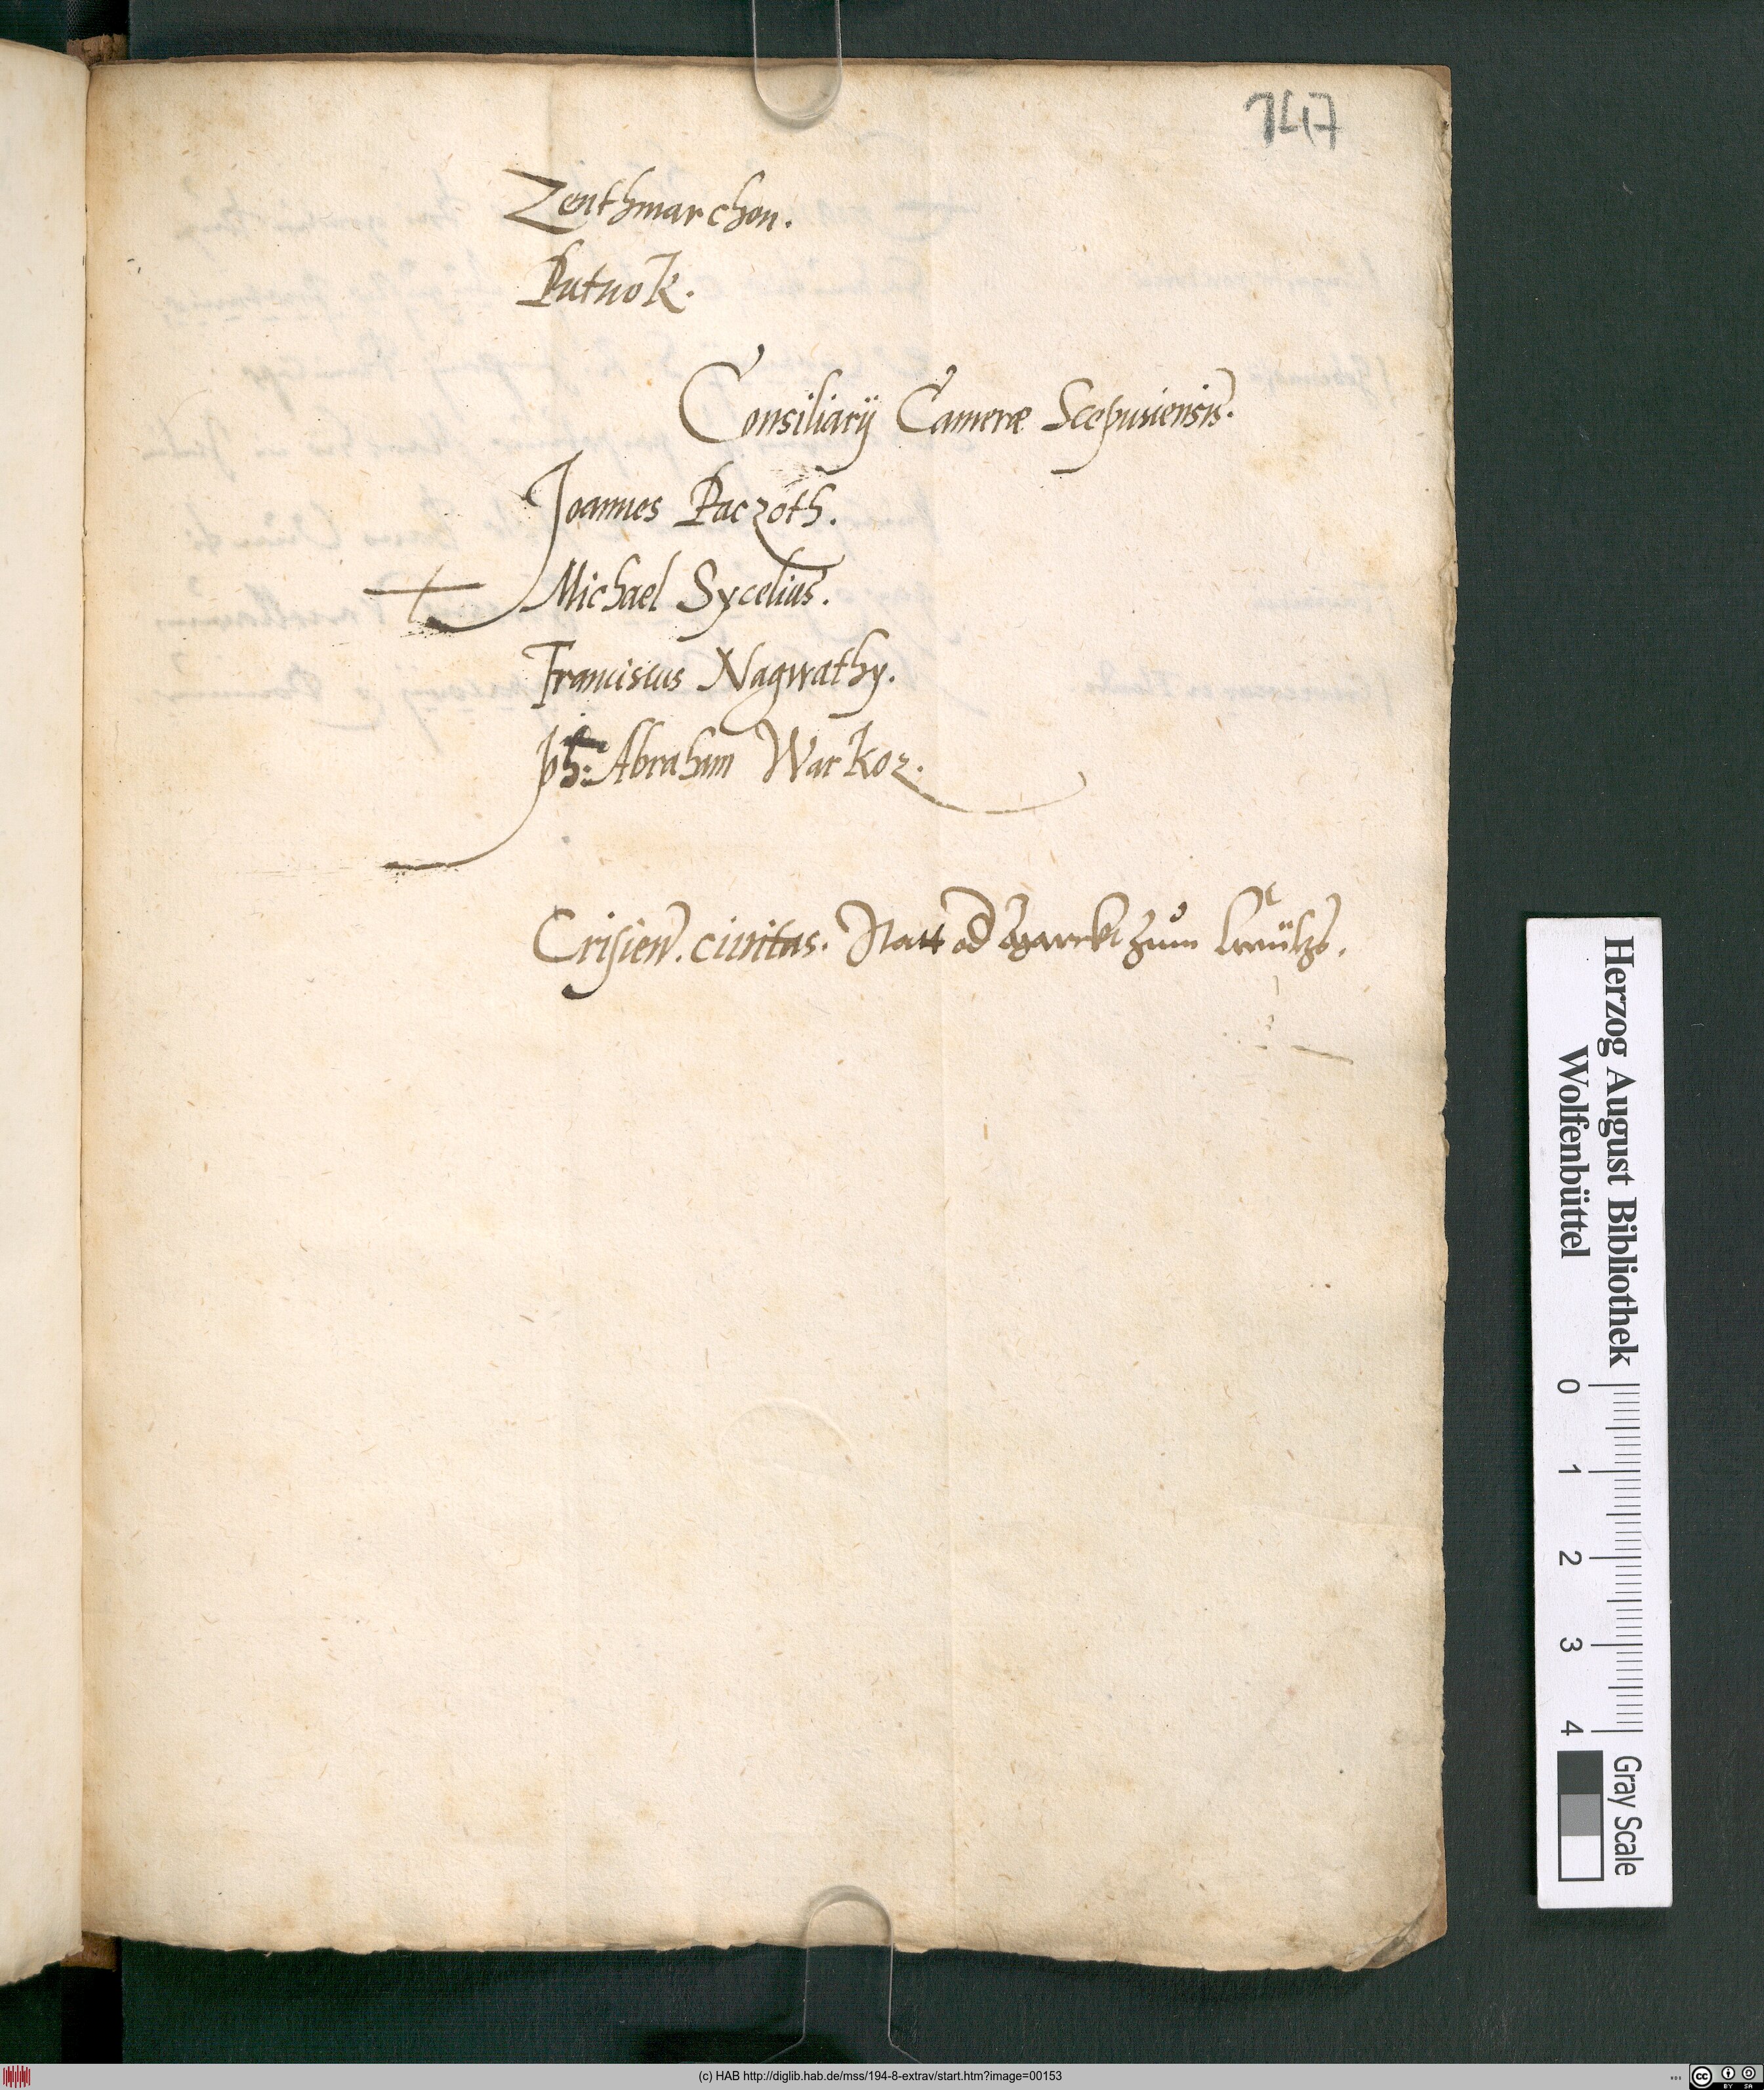 147
Zenthmarchon.
Putnok.
Consiliarij Cameræ Scepusiensis.
Joannes Paczoth.
Michael Sycelius.
Franciscus Nagwathy.
Abraham Warkoz.
Crisien. civitas. Statt od Marckt zum Creütz.
Herzog August Bibliothek
Wolfenbüttel
0 1 2 3 4
Gray Scale
(c) HAB http://diglib.hab.de/mss/194-8-extrav/start.htm?image=00153
cc BY SA